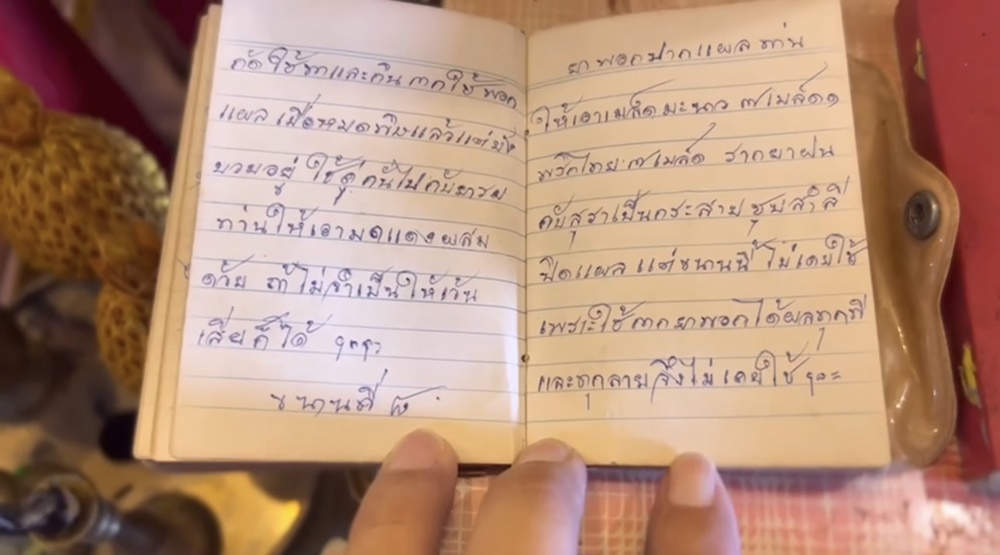 กัดใช้ทาและกิน กากใช้พอก
แผล เมื่อหมดพิษแล้วแต่ยัง
บวมอยู่ ใช้คู่กันไปกับยารม
ท่านให้เอามดแดงผสม
ด้วย ถ้าไม่จำเป็นให้เว้น
เสียก็ได้
ขนานที่ ๒
ยาพอกปากแผล ท่าน
ให้เอาเมล็ดมะนาว ๗ เมล็ด ๑
พริกไทย ๗ เมล็ด รากยาฝน
กับสุราเป็นกระสาย ชุบสำลี
ปิดแผล แต่ขนานนี้ ไม่เคยใช้
เพราะใช้กากยาพอกได้ผลทุกที
และทุกลายจึงไม่เคยใช้